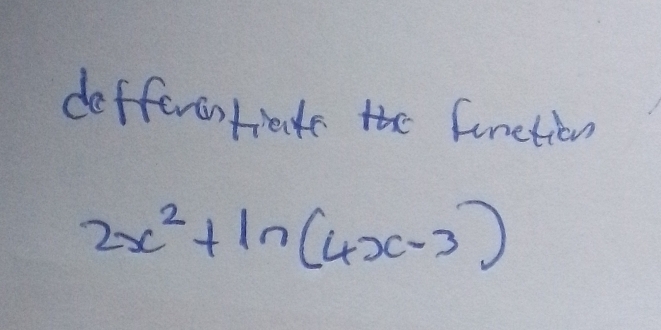 defferentiate the function
2x² + ln(4x-3)